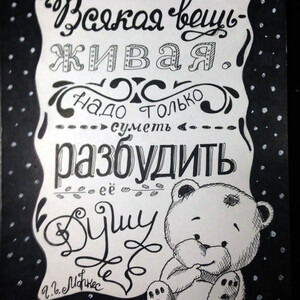 Всякая вещь-
живая.
Надо только
суметь
разбудить
её
Душу
Г.Г. Маркес